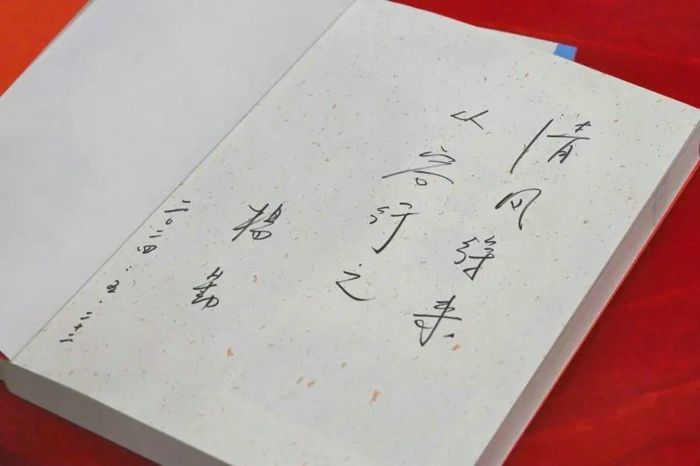 清风徐来
从容行之
杨
二〇二四.五.二十二